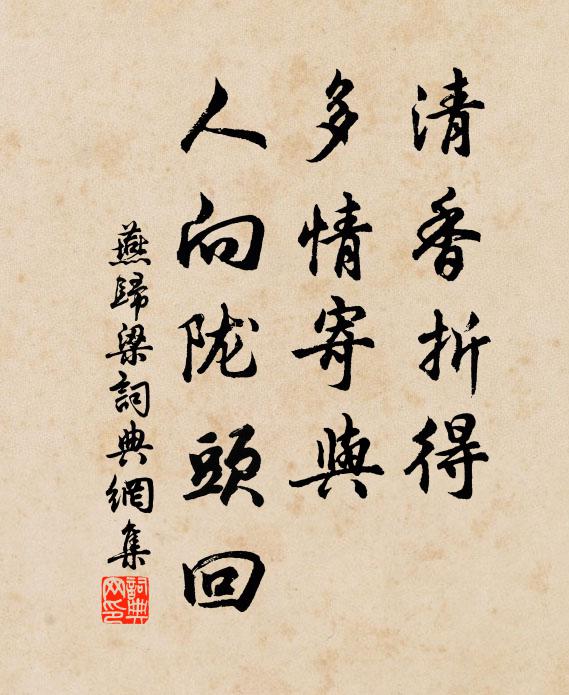 清香折得
多情寄與
人向陇頭回
燕歸梁詞典網集
詞典
网印